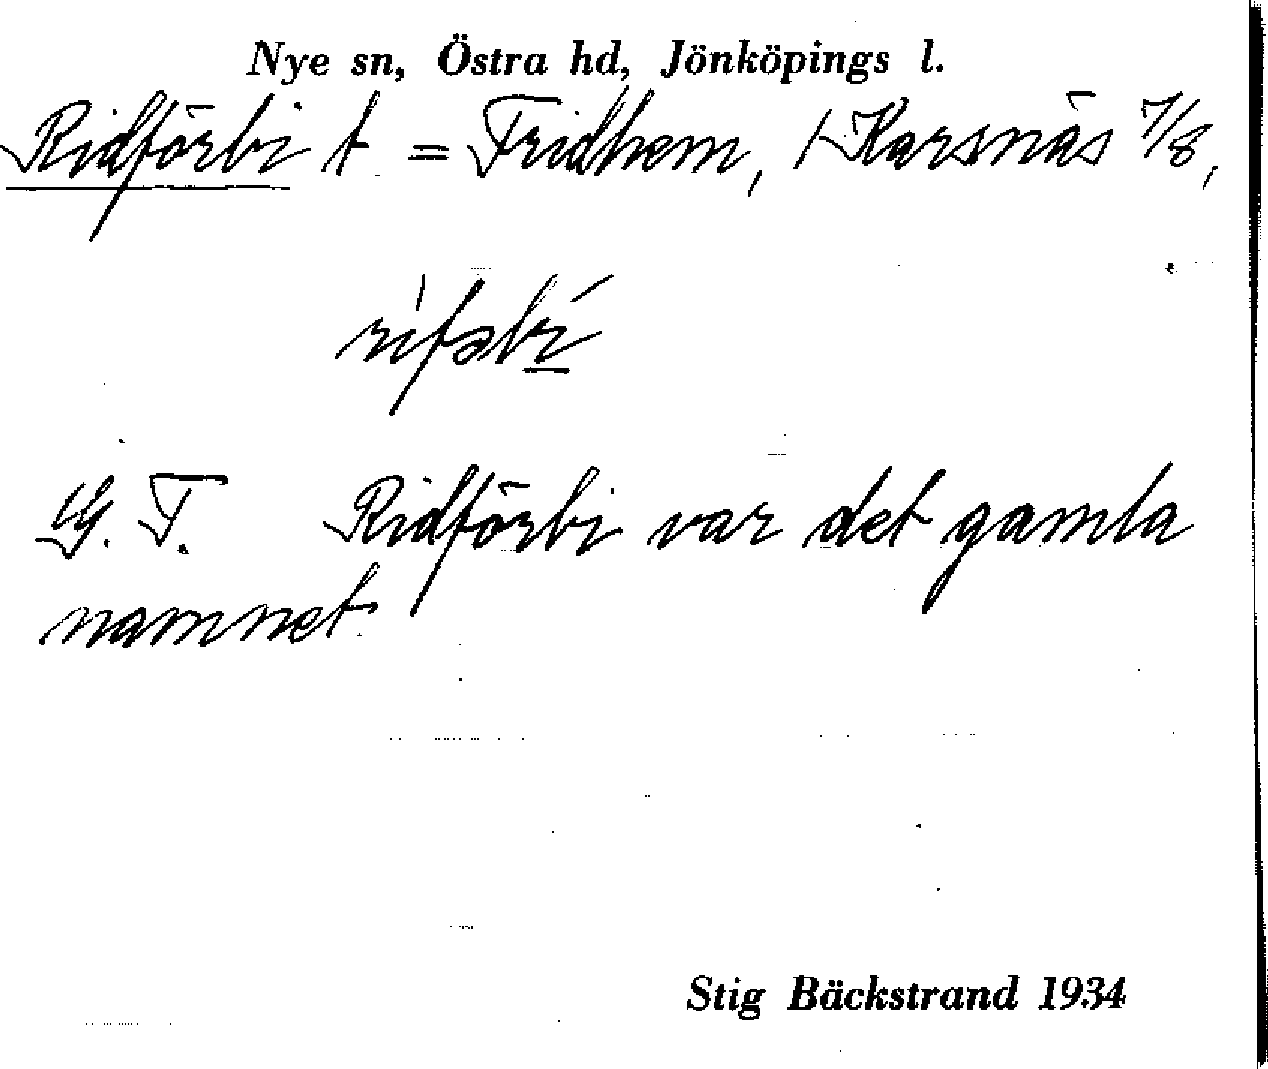 Nye sn, Östra hd, Jönköpings l.
Ridförbi t = Fridhem, /Karsnäs 7/8,
rifəbi
G. T. Ridförbi var det gamla
namnet.
Stig Bäckstrand 1934